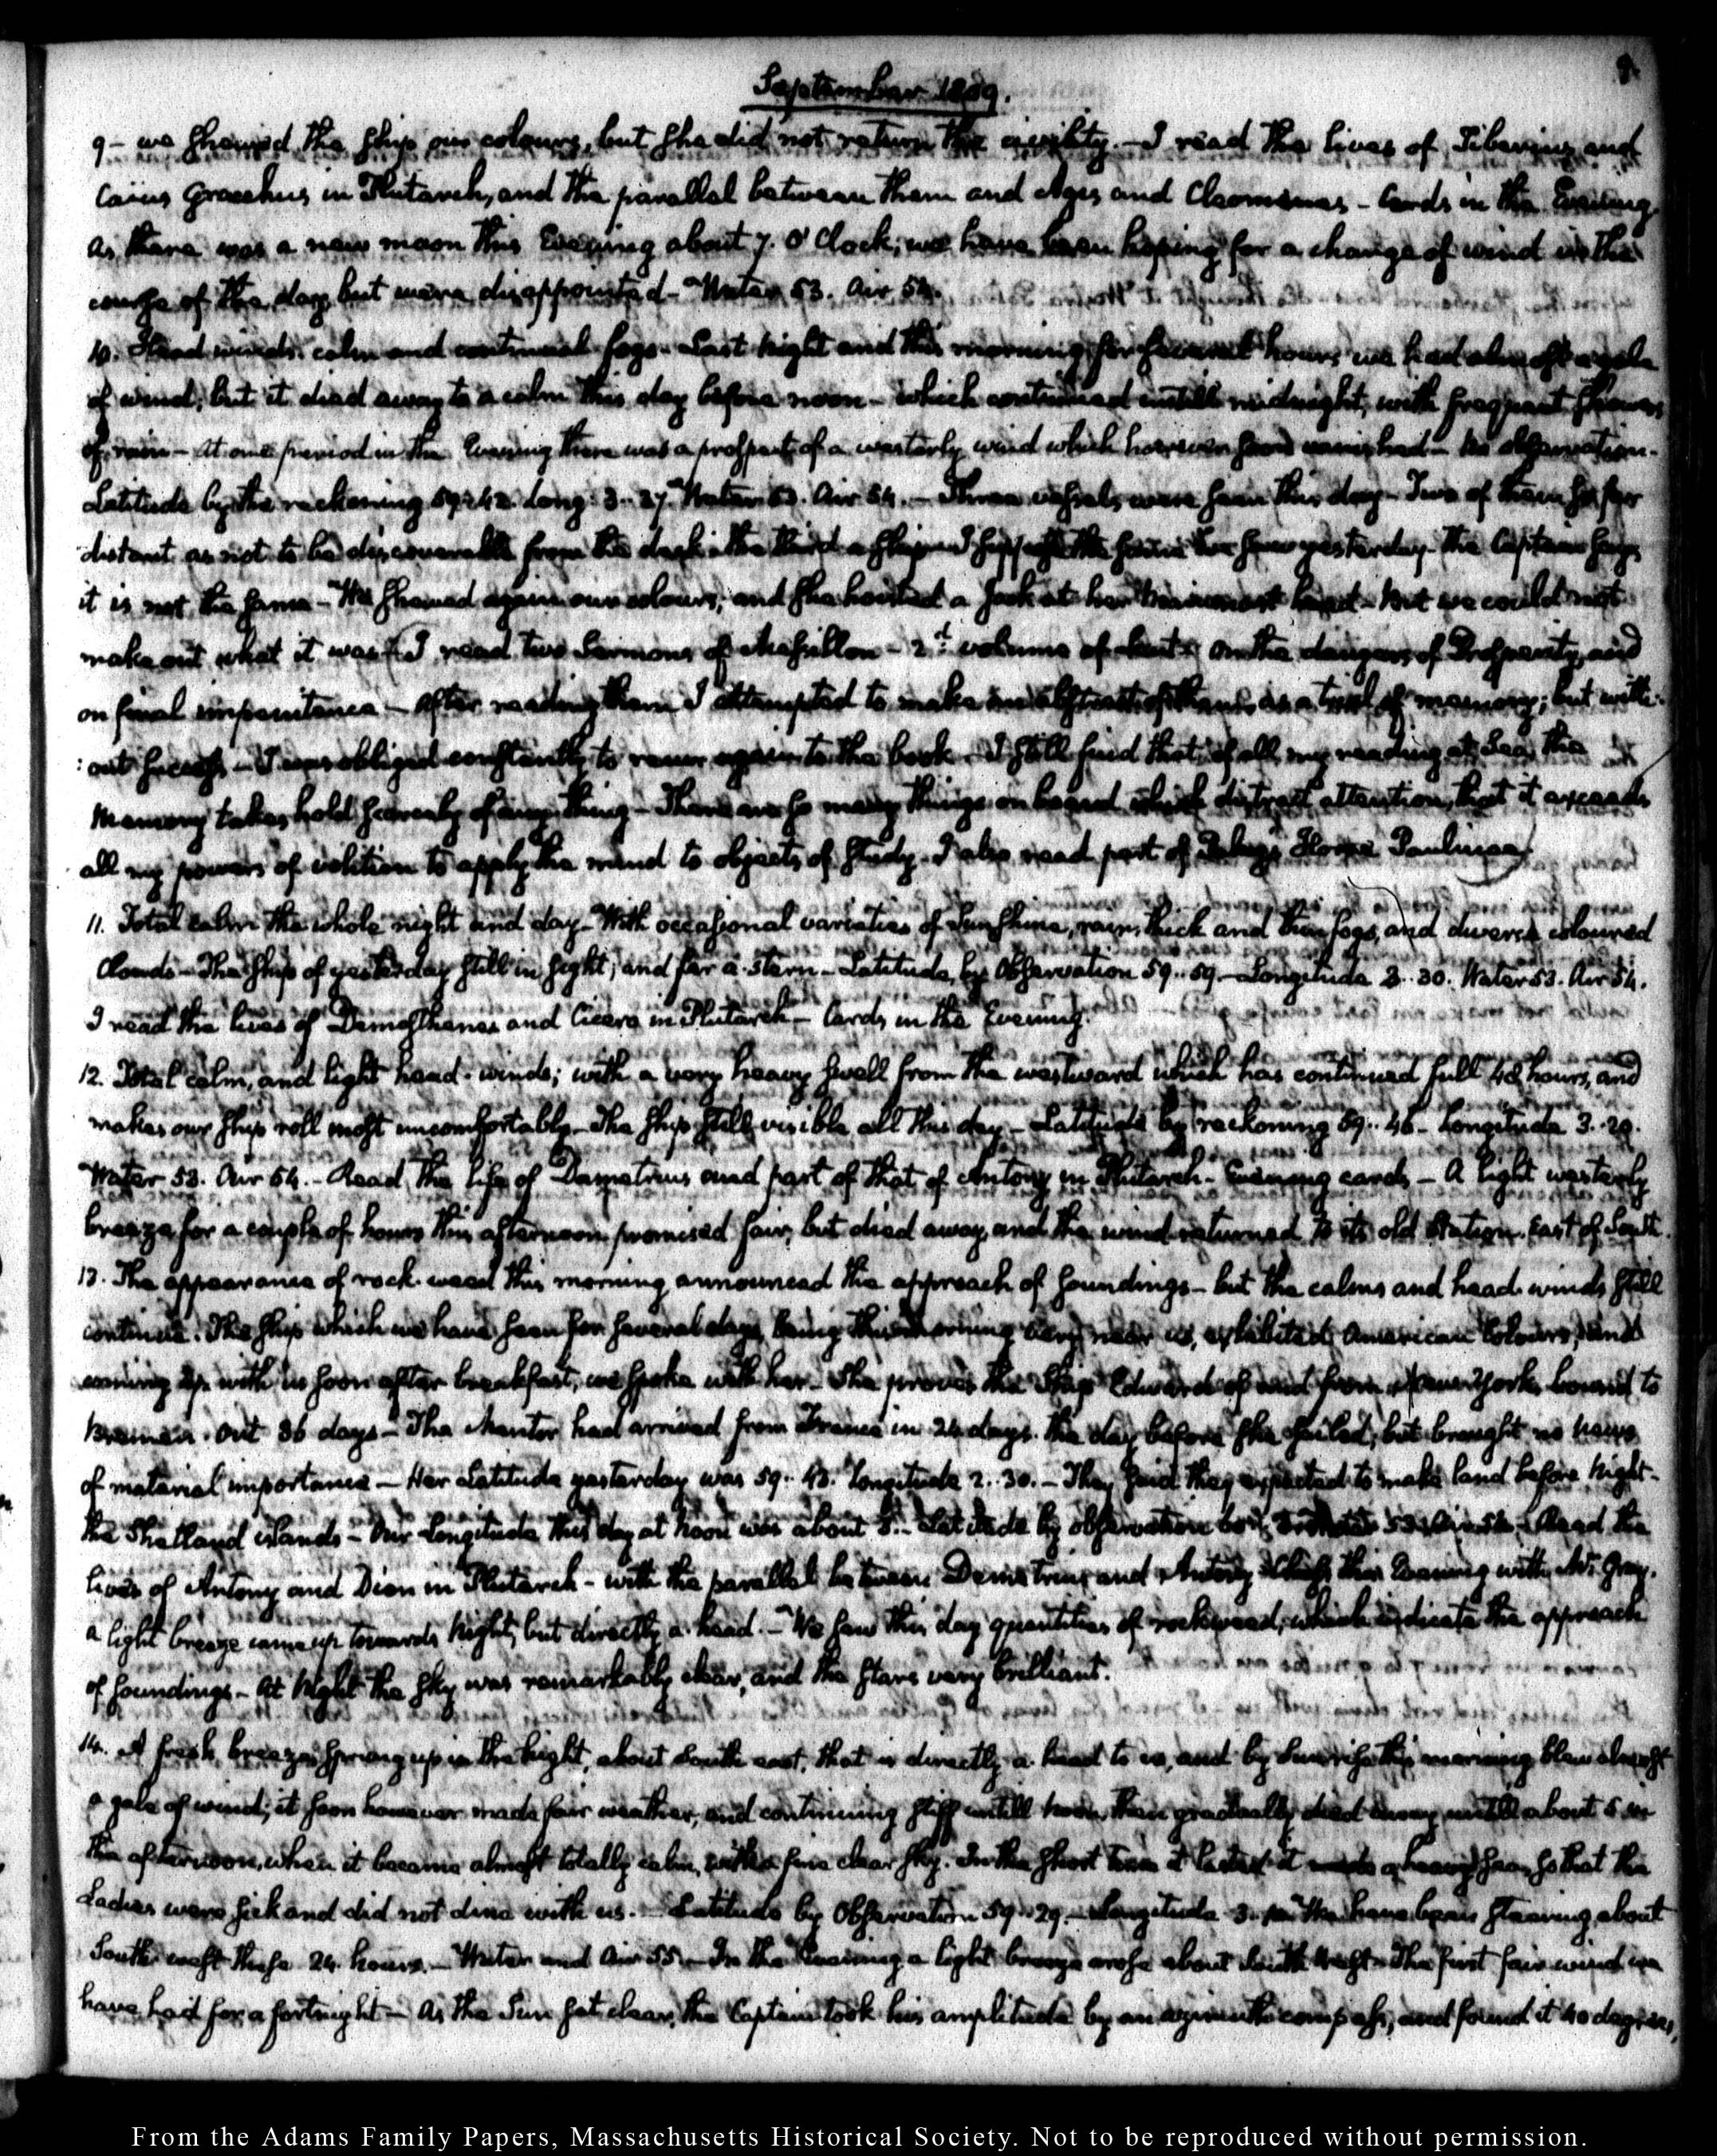 September 1809.
9 - we showed the ship our colours, but she did not return the civility. - I read the lives of Tiberius and
Caius Gracchus in Plutarch, and the parallel between them and Agis and Cleomenes - Cards in the Evening
As there was a new moon this Evening about 7. O'Clock, we have been hoping for a change of wind in the
course of the day, but were disappointed - Water 53. Air 54.
10. Head winds, calm and continual fogs - Last night and this morning for several hours we had almost a gale
of wind; but it died away to a calm this day before noon - which continued untill midnight, with frequent showers
of rain - At one period in the Evening there was a prospect of a westerly wind which however soon vanished - No observation -
Latitude by the reckoning 59:42. Long: 3..27. Water 53. Air 54. - Three vessels were seen this day - Two of them so far
distant as not to be discoverable from the deck - the third a ship I suppose the same we saw yesterday - The Captain says
it is not the same - We showed again our colours, and she hoisted a Jack at her head - But we could not
make out what it was. I read two Sermons of Massillon - 2d. volume of - on the dangers of Prosperity, and
on final impenitence - After reading them I attempted to make an abstract of them, as a trial of memory; but with-
:out success - I was obliged constantly to recur again to the book - I still find that of all my reading at Sea, the
Memory takes hold scarcely of any thing - There are so many things on board which distract attention, that it exceeds
all my powers of volition to apply the mind to objects of study. I also read part of Paley's Horae Paulinae.
11. Total calm the whole night and day - With occasional varieties of Sunshine, rain, thick and thin fogs, and diverse coloured
Clouds - The ship of yesterday still in sight, and far a-stern - Latitude, by Observation 59..59 - Longitude 3..30. Water 53. Air 54.
I read the lives of Demosthenes and Cicero in Plutarch - Cards in the Evening.
12. Total calm, and light head-winds; with a very heavy swell from the westward which has continued full 48 hours, and
makes our ship roll most uncomfortably - The ship still visible all this day - Latitude by reckoning 59..46 - Longitude 3..29.
Water 53. Air 54. - Read the life of Demetrius and part of that of Antony in Plutarch - Evening cards - A light westerly
breeze for a couple of hours this afternoon promised fair, but died away, and the wind returned to its old station. East of South.
13. The appearance of rock-weed this morning announced the approach of soundings - but the calms and head-winds still
continue. The ship which we have seen for several days, being this morning very near us, exhibited American Colours, and
coming up with us soon after breakfast, we spoke with her - She proves the Ship Edward of and from New-York, bound to
Bremen. Out 36 days - The Mentor had arrived from France in 24 days. the day before she sailed; but brought no news
of material importance - Her Latitude yesterday was 59..43. Longitude 2..30. - They said they expected to make land before Night -
the Shetland islands - Our Longitude this day at Noon was about 3.. Latitude by observation Water 53. Air 54 - Read the
lives of Antony and Dion in Plutarch - with the parallel between Demetrius and Antony. Chess this Evening with Mr. Gray.
A light breeze came up towards Night, but directly a-head. - We saw this day quantities of rockweed; which indicate the approach
of soundings - At Night the sky was remarkably clear, and the stars very brilliant.
14. A fresh breeze sprung up in the Night, about South east, that is directly a-head to us, and by Sunrise this morning blew almost
a gale of wind; it soon however made fair weather, and continuing stiff untill Noon, then gradually died away untill about 5 in
the afternoon, when it became almost totally calm, with a fine clear sky. In the short time it lasted it made a heavy sea, so that the
Ladies were sick and did not dine with us. - Latitude by Observation 59..29. - Longitude 3. We have been steering about
South-west these 24 hours. - Water and Air 55. - In the Evening a light breeze arose about South West - The first fair wind we
have had for a fortnight - As the Sun set clear, the Captain took his amplitude by an azimuth compass, and found it 40 degrees,
From the Adams Family Papers, Massachusetts Historical Society. Not to be reproduced without permission.